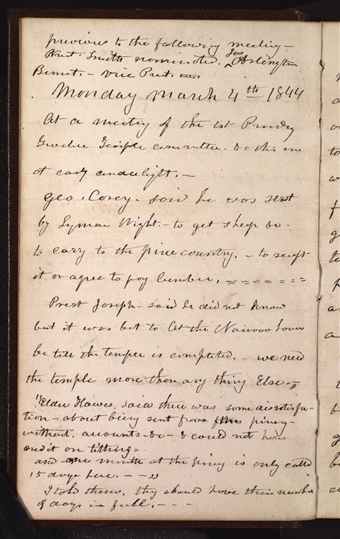 previous to the following meeting -
Prest Smith nominated Jas Arlington
Bennet - Vice Prest
Monday march 4th 1844
At a meeting of the 1st Presidey
Twelve Temple committee. &c this eve
at early candlelight. -
geo. Corey - said he was sent
by Lyman Wight - to get sheep &c -
to cary to the pine country. - to receipt
it or agree to pay lumber.
Prest Joseph - said he did not know
but it was bet to let the Nauvoo house
be till the temple is completed. - we need
the temple more than any thing Else
"Elder Hawes, said there was some disstisfac
tion - about being sent from piney -
without. accounts - &c - & could not have
credit on tithing -
and one month at the piney is only called
15 days here. - - "
I told them, they should have their number
of days in full. - - -